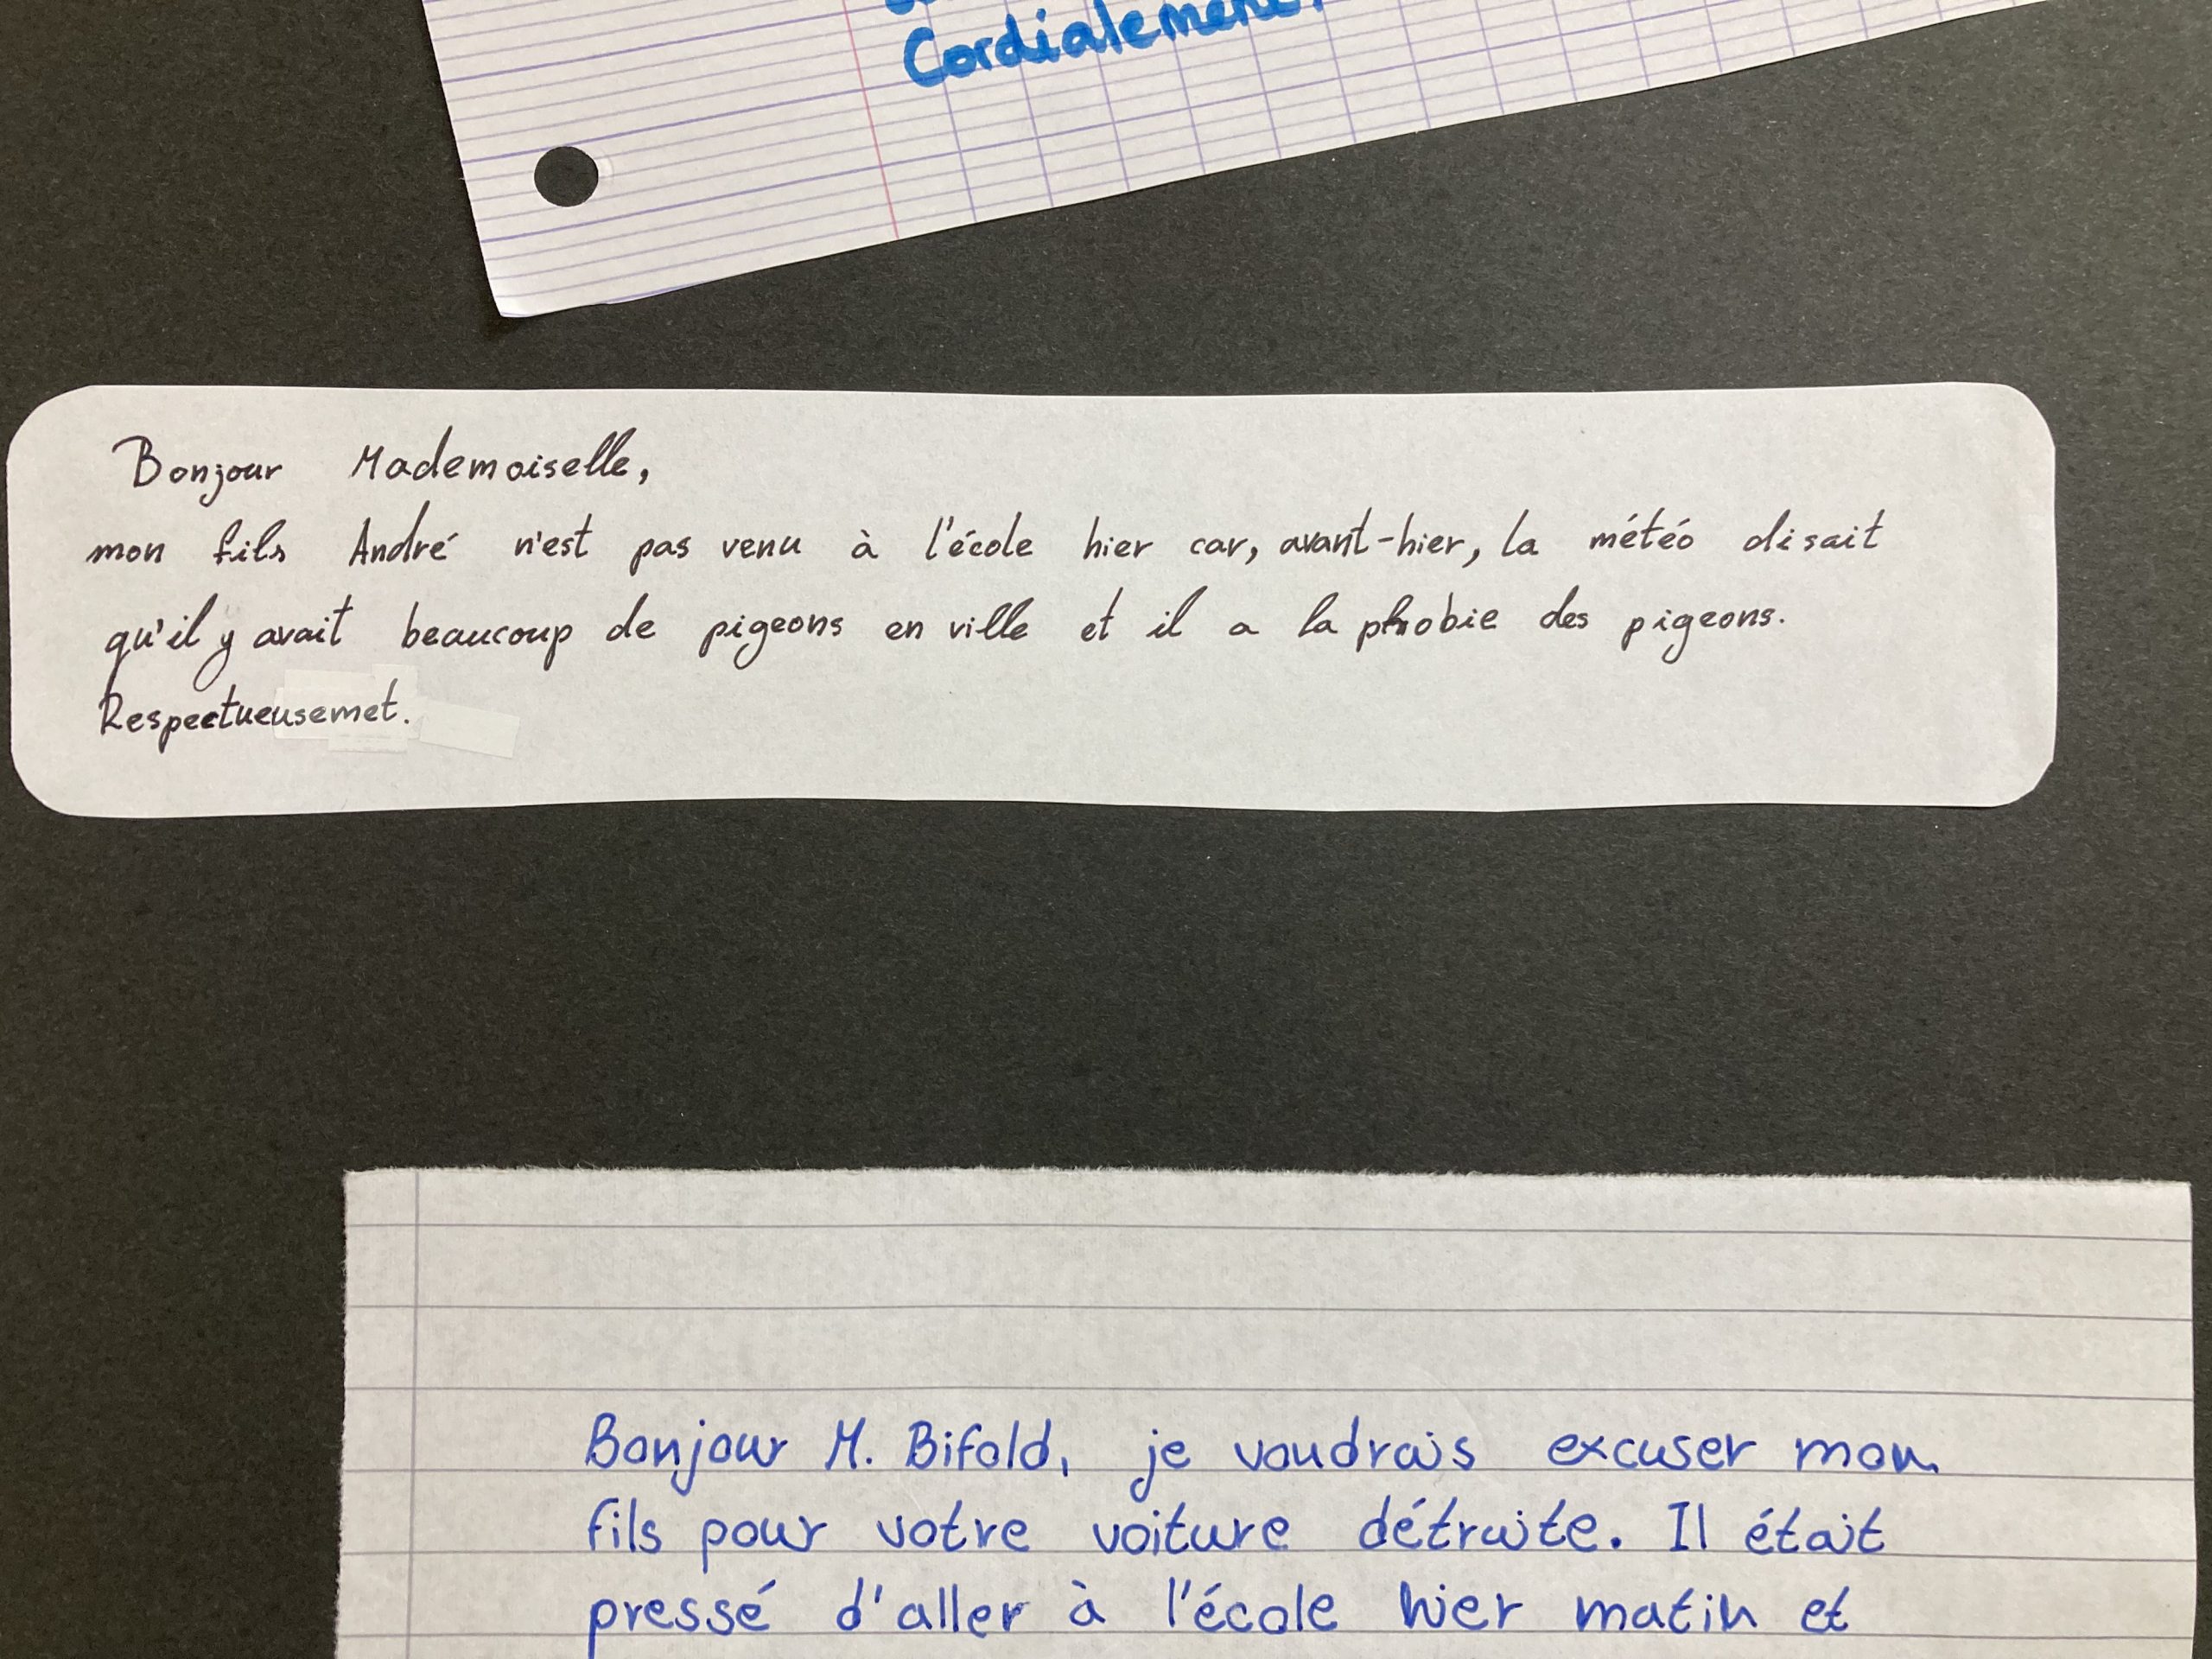 Cordialement.
Bonjour Mademoiselle,
mon fils André n'est pas venu à l'école hier car, avant-hier, la météo disait
qu'il y avait beaucoup de pigeons en ville et il a la phobie des pigeons.
Respectueusemet.
Bonjour M. Bifold, je voudrais excuser mon
fils pour votre voiture détruite. Il était
pressé d'aller à l'école hier matin et